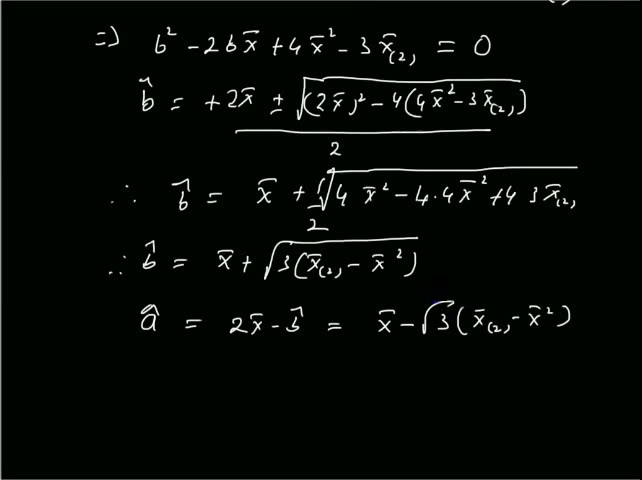 ⇒ b² - 2bx̄ + 4x̄² - 3x̄₍₂₎ = 0
b̂ = +2x̄ ± √((2x̄)² - 4(4x̄² - 3x̄₍₂₎)) / 2
∴ b̂ = x̄ + ½√(4x̄² - 4·4x̄² + 4 3x̄₍₂₎)
∴ b̂ = x̄ + √(3(x̄₍₂₎ - x̄²))
â = 2x̄ - b̂ = x̄ - √3(x̄₍₂₎ - x̄²)